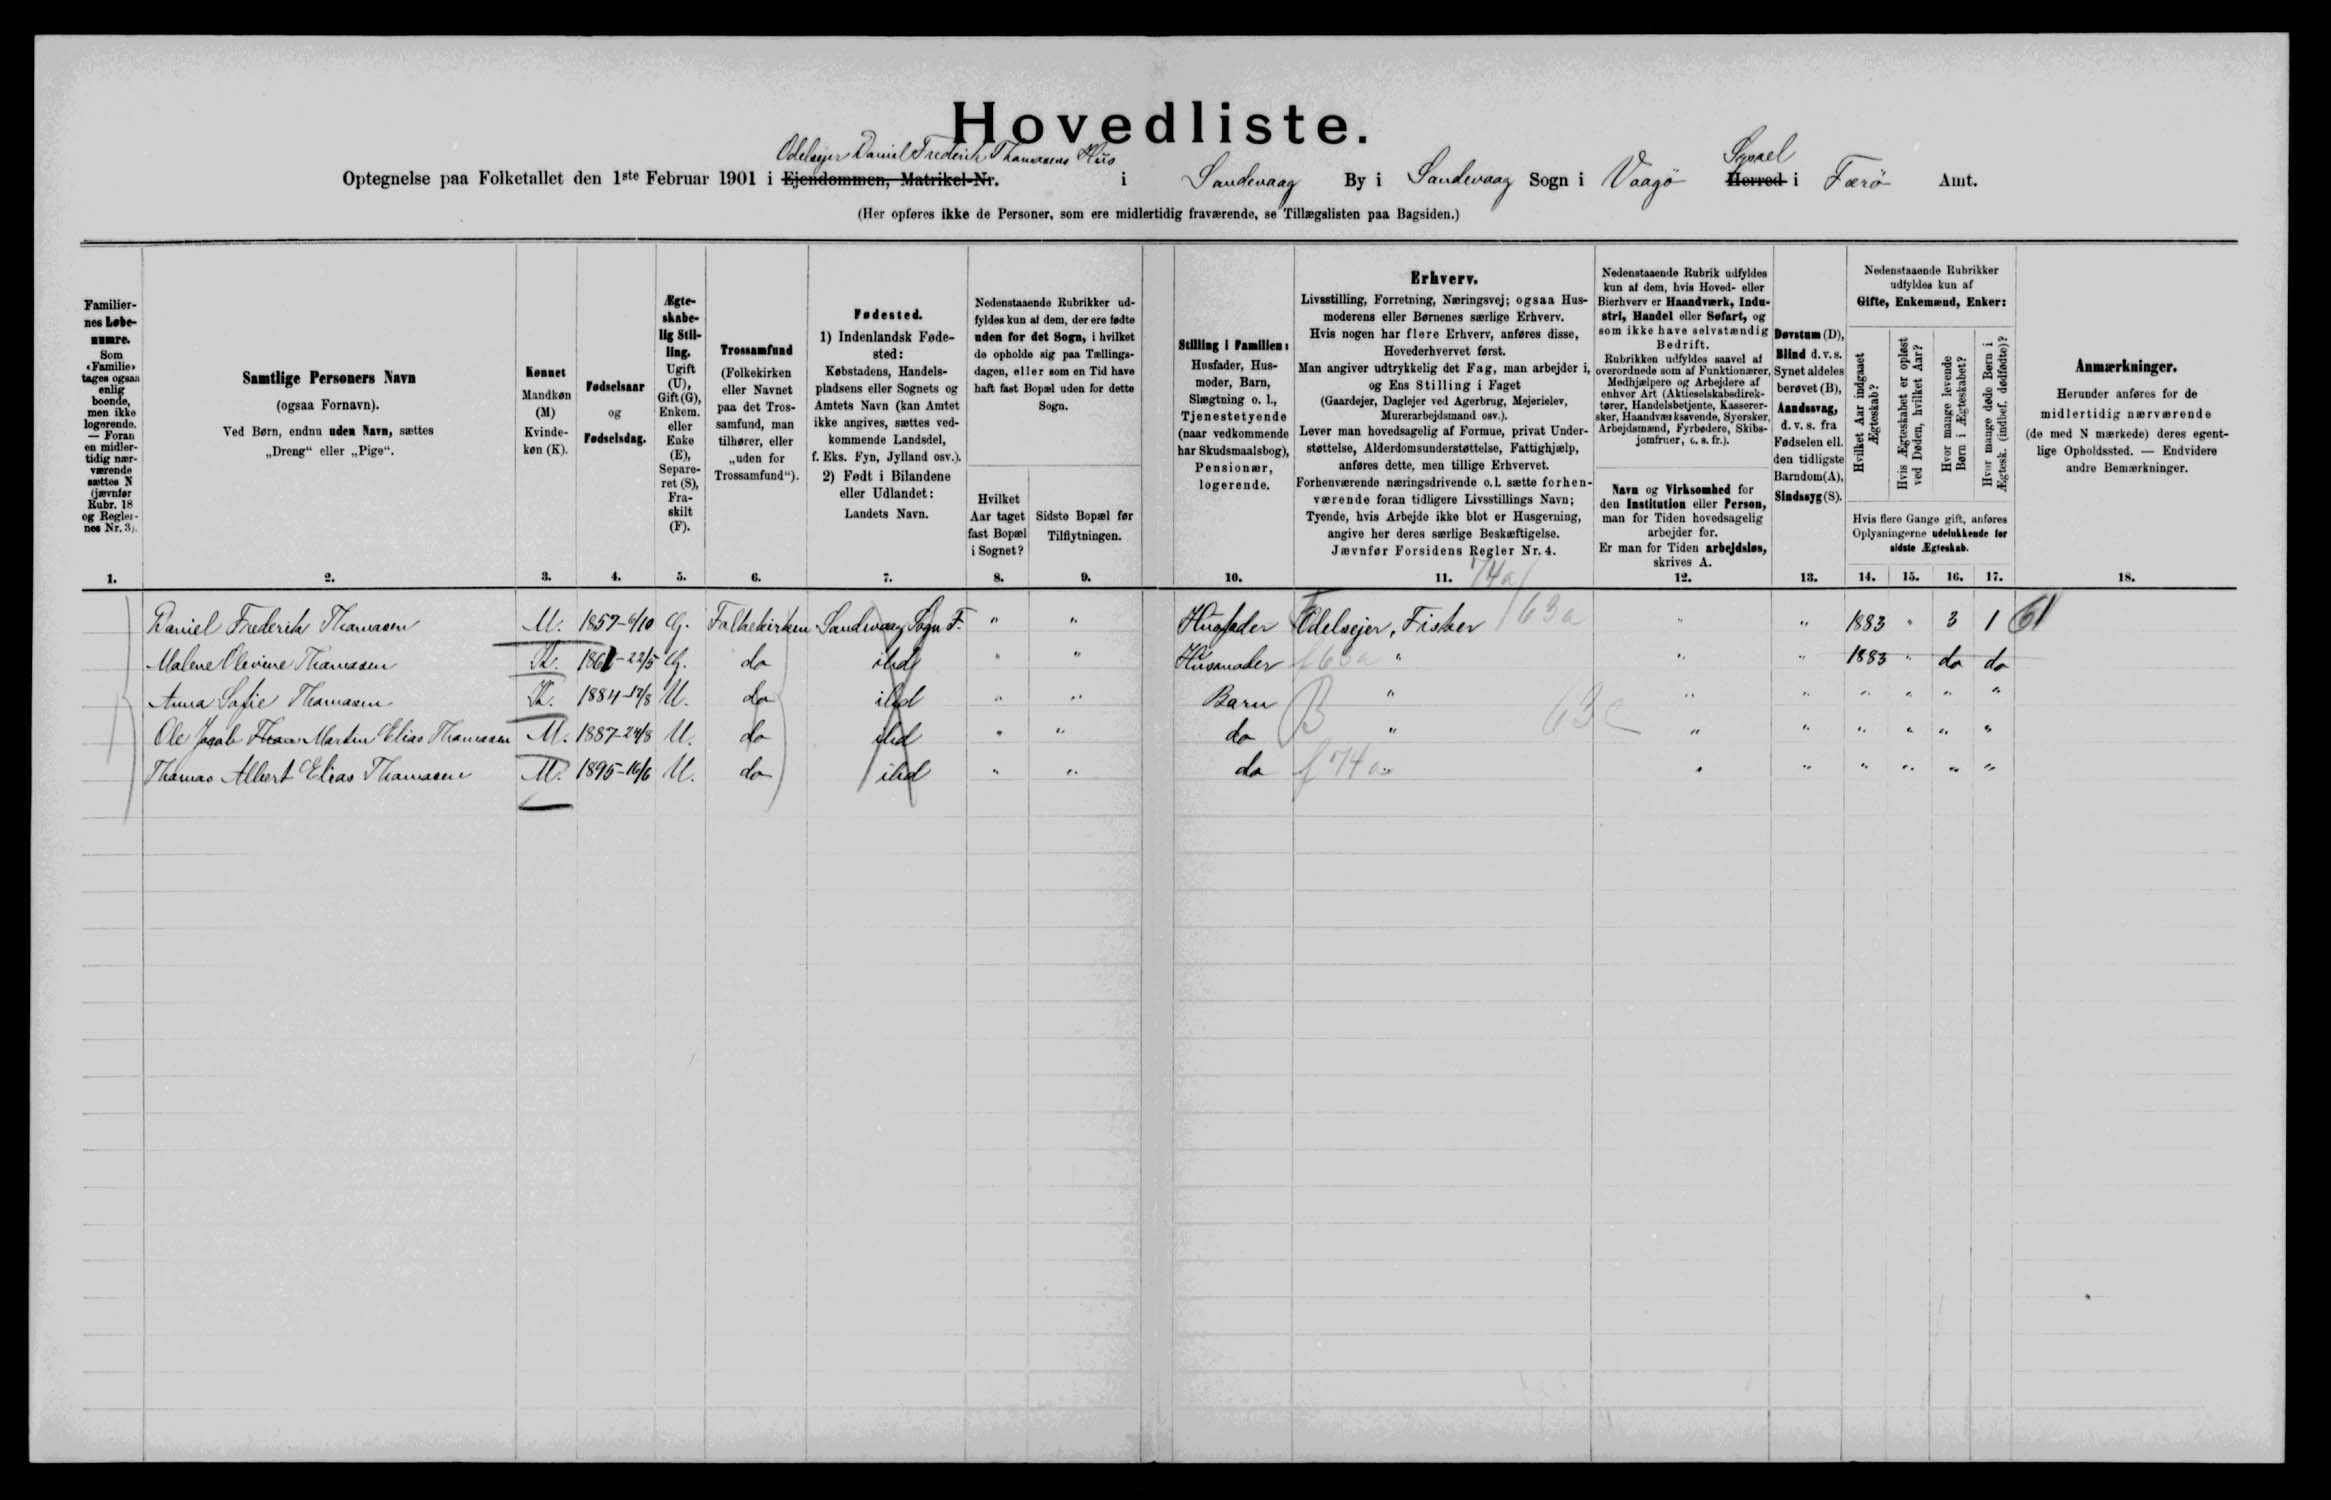 Hovedliste.
Odelsejer Daniel Frederik Thomasens Hus
Sysael
Optegnelse paa Folketallet den 1ste Februar 1901 i Ejendommen, Matrikel-Nr. i Sandevaag By i Sandevaag Sogn i Vaagö Herred i Færö Amt.
(Her opføres ikke de Personer, som ere midlertidig fraværende, se Tillægslisten paa Bagsiden.)
Familier-
nes Løbe-
numre.
Som
«Familie»
tages ogsaa
enlig
boende,
men ikke
logerende.
— Foran
en midler-
tidig nær-
værende
sættes N
(jævnfør
Rubr. 18
og Regler-
nes Nr. 3).
1.
Samtlige Personers Navn
(ogsaa Fornavn).
Ved Børn, endnu uden Navn, sættes
„Dreng" eller „Pige".
2.
Kønnet
Mandkøn
(M)
Kvinde-
køn (K).
3.
Fødselsaar
og
Fødselsdag.
4.
Ægte-
skabe-
lig Stil-
ling.
Ugift
(U),
Gift (G),
Enkem.
eller
Enke
(E),
Separe-
ret (S),
Fra-
skilt
(F).
5.
Trossamfund
(Folkekirken
eller Navnet
paa det Tros-
samfund, man
tilhører, eller
„uden for
Trossamfund").
6.
Fødested.
1) Indenlandsk Føde-
sted:
Købstadens, Handels-
pladsens eller Sognets og
Amtets Navn (kan Amtet
ikke angives, sættes ved-
kommende Landsdel,
f. Eks. Fyn, Jylland osv.).
2) Født i Bilandene
eller Udlandet:
Landets Navn.
7.
Nedenstaaende Rubrikker ud-
fyldes kun af dem, der ere fødte
uden for det Sogn, i hvilket
de opholde sig paa Tællings-
dagen, eller som en Tid have
haft fast Bopæl uden for dette
Sogn.
Hvilket
Aar taget
fast Bopæl
i Sognet?
8.
Sidste Bopæl før
Tilflytningen.
9.
Stilling i Familien:
Husfader, Hus-
moder, Barn,
Slægtning o. l.,
Tjenestetyende
(naar vedkommende
har Skudsmaalsbog),
Pensionær,
logerende.
10.
Erhverv.
Livsstilling, Forretning, Næringsvej; ogsaa Hus-
moderens eller Børnenes særlige Erhverv.
Hvis nogen har flere Erhverv, anføres disse,
Hovederhvervet først.
Man angiver udtrykkelig det Fag, man arbejder i,
og Ens Stilling i Faget
(Gaardejer, Daglejer ved Agerbrug, Mejerielev,
Murerarbejdsmand osv.).
Lever man hovedsagelig af Formue, privat Under-
støttelse, Alderdomsunderstøttelse, Fattighjælp,
anføres dette, men tillige Erhvervet.
Forhenværende næringsdrivende o. l. sætte forhen-
værende foran tidligere Livsstillings Navn;
Tyende, hvis Arbejde ikke blot er Husgerning,
angive her deres særlige Beskæftigelse.
Jævnfør Forsidens Regler Nr. 4.
11. 74a
Nedenstaaende Rubrik udfyldes
kun af dem, hvis Hoved- eller
Bierhverv er Haandværk, Indu-
stri, Handel eller Søfart, og
som ikke have selvstændig
Bedrift.
Rubrikken udfyldes saavel af
overordnede som af Funktionærer,
Medhjælpere og Arbejdere af
enhver Art (Aktieselskabsdirek-
tører, Handelsbetjente, Kasserer-
sker, Haandværksvende, Syersker,
Arbejdsmænd, Fyrbødere, Skibs-
jomfruer, o. s. fr.).
Navn og Virksomhed for
den Institution eller Person,
man for Tiden hovedsagelig
arbejder for.
Er man for Tiden arbejdsløs,
skrives A.
12.
Døvstum (D),
Blind d. v. s.
Synet aldeles
berøvet (B),
Aandssvag,
d. v. s. fra
Fødselen ell.
den tidligste
Barndom (A),
Sindssyg (S).
13.
Nedenstaaende Rubrikker
udfyldes kun af
Gifte, Enkemænd, Enker:
Hvilket Aar indgaaet
Ægteskab?
Hvis Ægteskabet er opløst
ved Døden, hvilket Aar?
Hvor mange levende
Børn i Ægteskabet?
Hvor mange døde Børn i
Ægtesk. (indbef. dødfødte)?
Hvis flere Gange gift, anføres
Oplysningerne udelukkende for
sidste Ægteskab.
14. 15. 16. 17.
Anmærkninger.
Herunder anføres for de
midlertidig nærværende
(de med N mærkede) deres egent-
lige Opholdssted. — Endvidere
andre Bemærkninger.
18.
Daniel Frederik Thomasen M. 1857-6/10 G. Folkekirken Sandevaag Sogn F. " " Husfader Odelsejer, Fisker 63a " " 1883 " 3 1 61
Malene Olevine Thomasen K. 1861-22/5 G. do ibid " " Husmoder f 63a " " " 1883 " do do
Anna Sofie Thomasen K. 1884-17/8 U. do ibid " " Barn " " " " " " "
Ole Jacob Thom Martin Elias Thomasen M. 1887-24/8 U. do ibid " " do B " 63c " " " " " "
Thomas Albert Elias Thomasen M. 1895-16/6 U. do ibid " " do f 74a " " " " " "